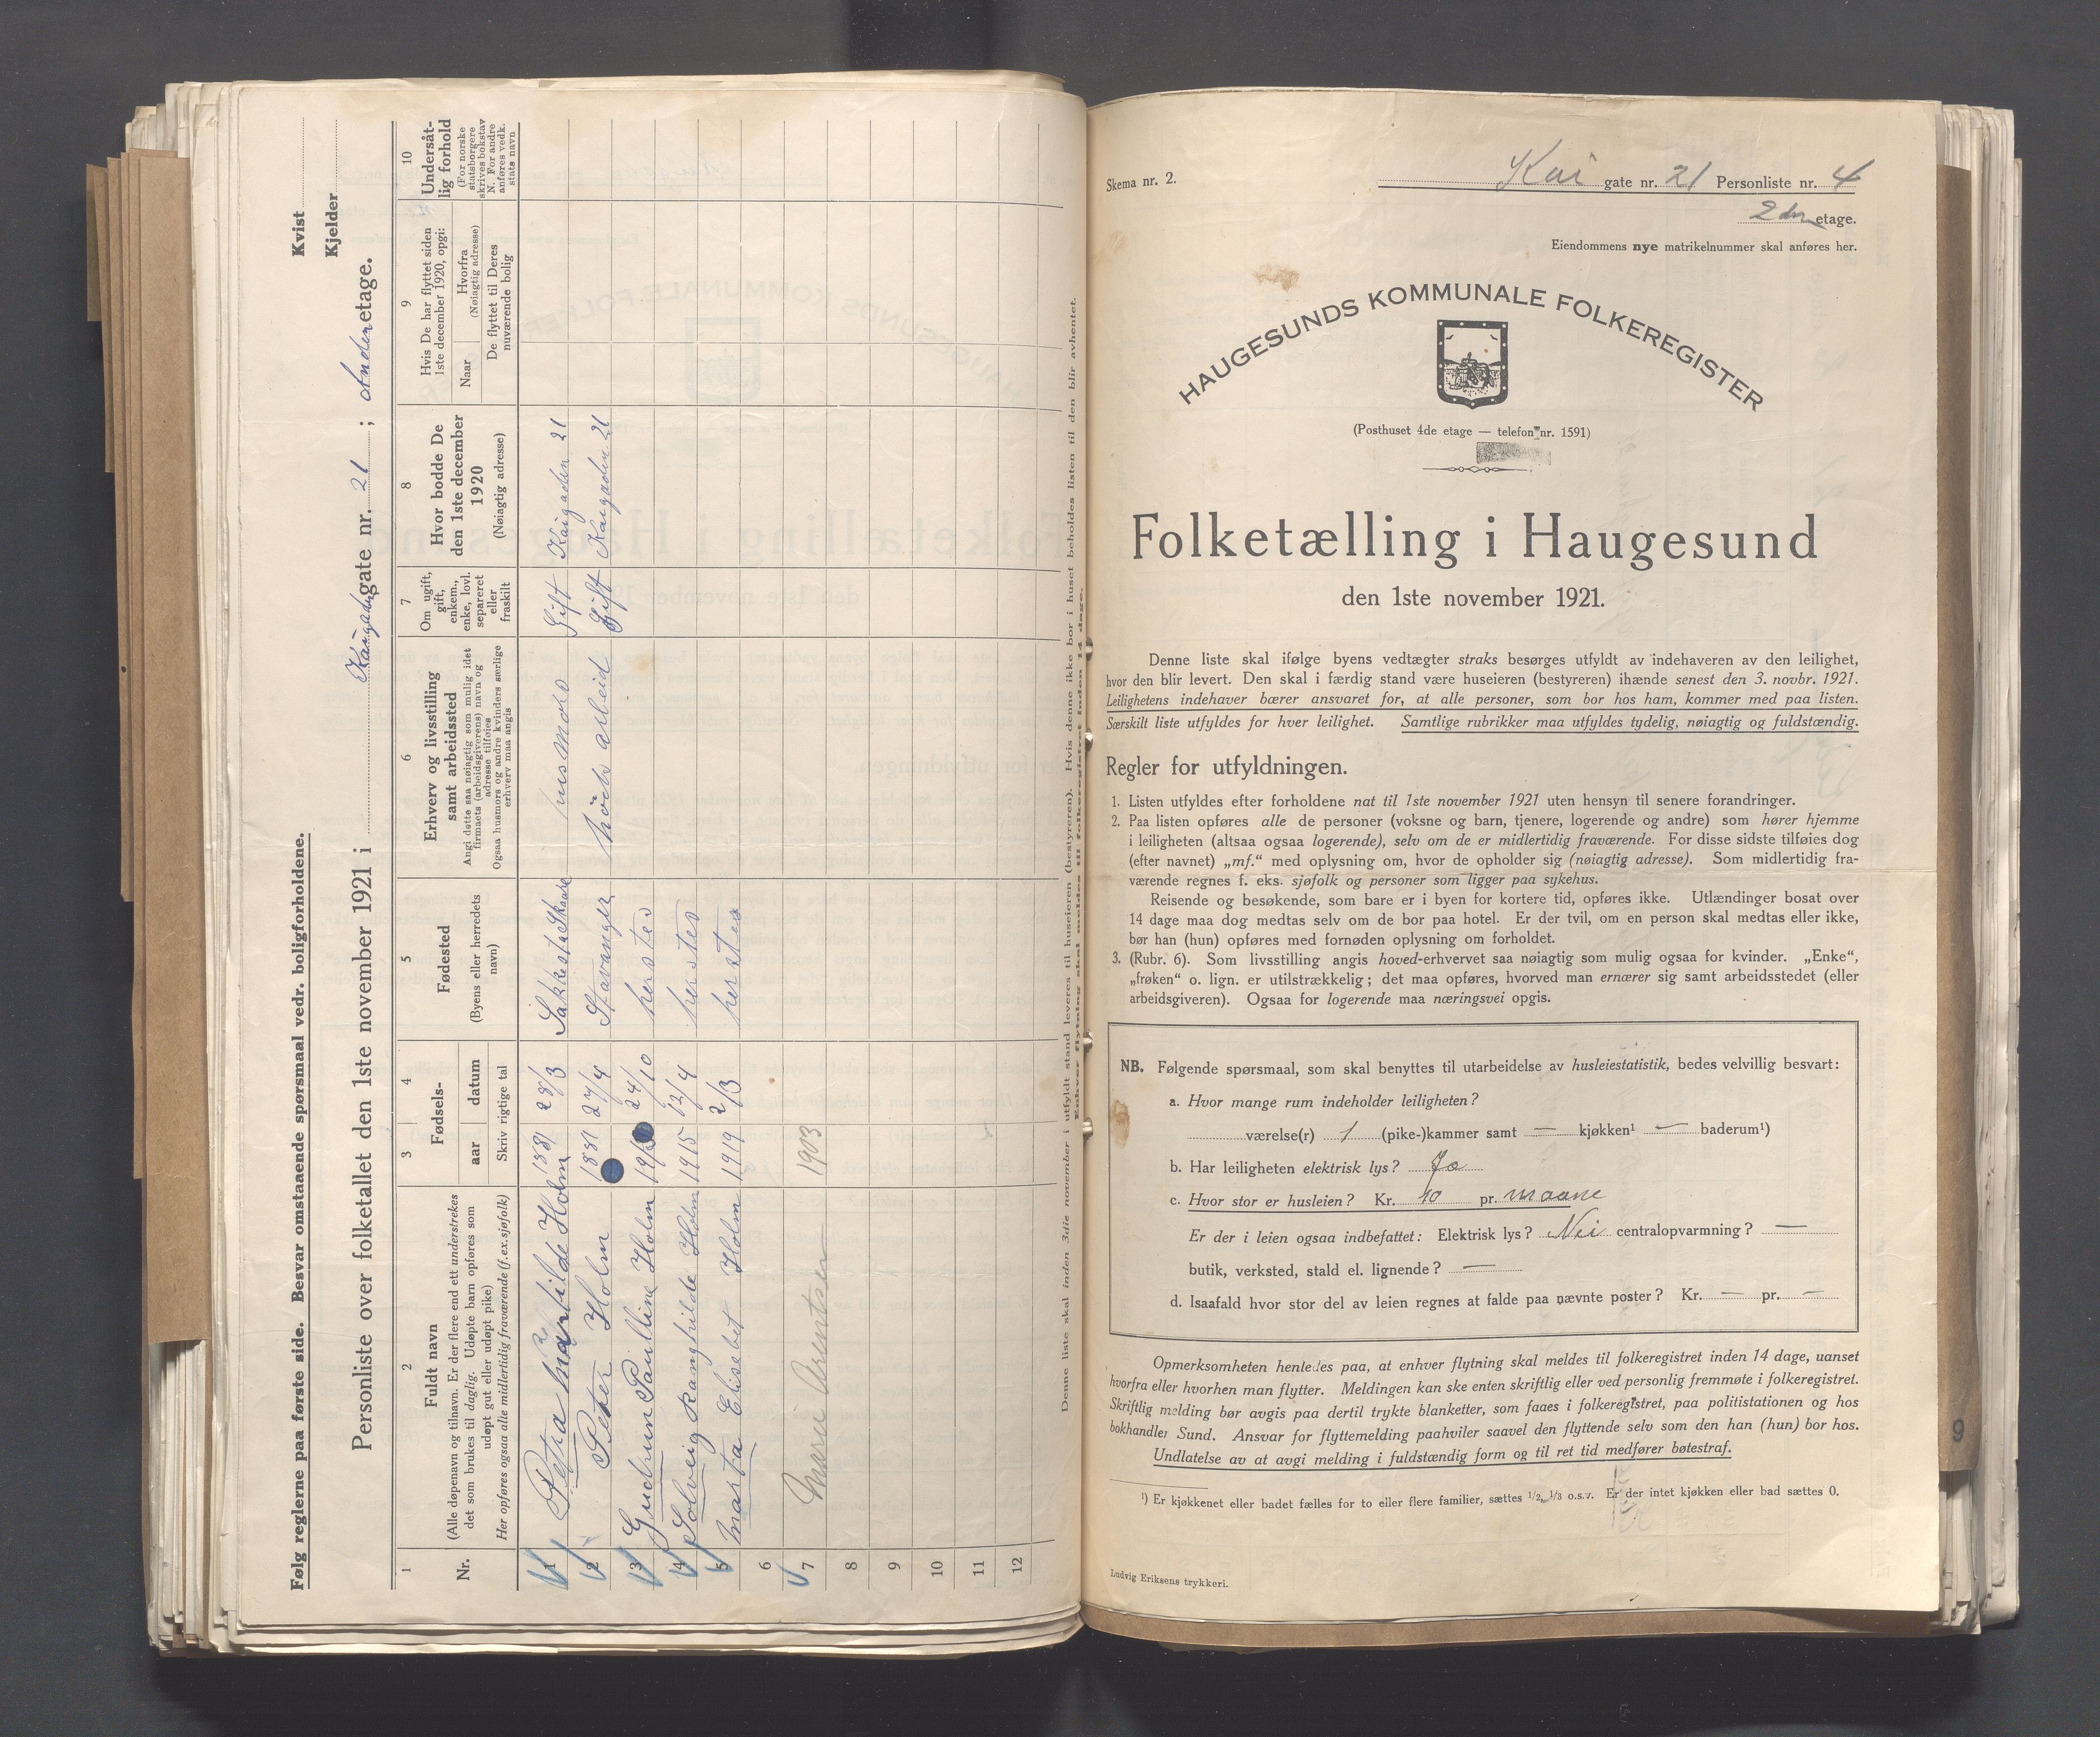 Følg reglerne paa første side. Besvar omstaaende spørsmaal vedr. boligforholdene.
Kvist
Kjelder
Personliste over folketallet den 1ste november 1921 i Kaigaden gate nr. 21 ; Anden etage.
1 2 3 4 5 6 7 8 9 10
Nr.
Fuldt navn
(Alle døpenavn og tilnavn. Er der flere end ett understrekes
det som brukes til daglig. Udøpte barn opføres som
udøpt gut eller udøpt pike)
Her opføres ogsaa alle midlertidig fraværende (f. ex. sjøfolk)
Fødsels-
aar datum
Skriv rigtige tal
Fødested
(Byens eller herredets
navn)
Erhverv og livsstilling
samt arbeidssted
Angi dette saa nøiagtig som mulig idet
firmaets (arbeidsgiverens) navn og
adresse tilføies
Ogsaa husmors og andre kvinders særlige
erhverv maa angis
Om ugift,
gift,
enkem.,
enke, lovl.
separeret
eller
fraskilt
Hvor bodde De
den 1ste december
1920
(Nøiagtig adresse)
Hvis De har flyttet siden
1ste december 1920, opgi:
Naar
Hvorfra
(Nøiagtig adresse)
De flyttet til Deres
nuværende bolig
Undersåt-
lig forhold
(For norske
statsborgere
skrives bokstav
N. For andre
anføres vedk.
stats navn
1 Petra Matilde Holm 1881 28/3 Skaare husmoro Gift Kaigaden 21
2 Peter Holm 1881 27/4 Stavanger arbeid Gift Kaigaden 21
3 Gudrun Paulline Holm 24/10 hersted
4 Solveig Ranghilde Holm 1915 12/4 hersted
5 Marta Elisabet Holm 1919 2/3 hersted
6
7 Marie Arentsen 1903
8
9
10
11
12
Denne liste skal inden 3die november i utfyldt stand leveres til huseieren (bestyreren). Hvis denne ikke bor i huset beholdes listen til den blir avhentet.
Enhver flytning skal meldes til folkeregistret inden 14 dage.
Skema nr. 2.
Kai gate nr. 21 Personliste nr. 4
2den etage.
Eiendommens nye matrikelnummer skal anføres her.
HAUGESUNDS KOMMUNALE FOLKEREGISTER
(Posthuset 4de etage — telefon nr. 1591)
Folketælling i Haugesund
den 1ste november 1921.
Denne liste skal ifølge byens vedtægter straks besørges utfyldt av indehaveren av den leilighet,
hvor den blir levert. Den skal i færdig stand være huseieren (bestyreren) ihænde senest den 3. novbr. 1921.
Leilighetens indehaver bærer ansvaret for, at alle personer, som bor hos ham, kommer med paa listen.
Særskilt liste utfyldes for hver leilighet. Samtlige rubrikker maa utfyldes tydelig, nøiagtig og fuldstændig.
Regler for utfyldningen.
1. Listen utfyldes efter forholdene nat til 1ste november 1921 uten hensyn til senere forandringer.
2. Paa listen opføres alle de personer (voksne og barn, tjenere, logerende og andre) som hører hjemme
i leiligheten (altsaa ogsaa logerende), selv om de er midlertidig fraværende. For disse sidste tilføies dog
(efter navnet) „mf.“ med oplysning om, hvor de opholder sig (nøiagtig adresse). Som midlertidig fra-
værende regnes f. eks. sjøfolk og personer som ligger paa sykehus.
Reisende og besøkende, som bare er i byen for kortere tid, opføres ikke. Utlændinger bosat over
14 dage maa dog medtas selv om de bor paa hotel. Er der tvil, om en person skal medtas eller ikke,
bør han (hun) opføres med fornøden oplysning om forholdet.
3. (Rubr. 6). Som livsstilling angis hoved-erhvervet saa nøiagtig som mulig ogsaa for kvinder. „Enke“,
„frøken“ o. lign. er utilstrækkelig; det maa opføres, hvorved man ernærer sig samt arbeidsstedet (eller
arbeidsgiveren). Ogsaa for logerende maa næringsvei opgis.
NB. Følgende spørsmaal, som skal benyttes til utarbeidelse av husleiestatistik, bedes velvillig besvart:
a. Hvor mange rum indeholder leiligheten?
værelse(r) 1 (pike-)kammer samt — kjøkken¹ — baderum¹)
b. Har leiligheten elektrisk lys? Ja
c. Hvor stor er husleien? Kr. 10 pr. maane
Er der i leien ogsaa indbefattet: Elektrisk lys? Nei centralopvarmning? —
butik, verksted, stald el. lignende? —
d. Isaafald hvor stor del av leien regnes at falde paa nævnte poster? Kr. — pr. —
Opmerksomheten henledes paa, at enhver flytning skal meldes til folkeregistret inden 14 dage, uanset
hvorfra eller hvorhen man flytter. Meldingen kan ske enten skriftlig eller ved personlig fremmøte i folkeregistret.
Skriftlig melding bør avgis paa dertil trykte blanketter, som faaes i folkeregistret, paa politistationen og hos
bokhandler Sund. Ansvar for flyttemelding paahviler saavel den flyttende selv som den han (hun) bor hos.
Undlatelse av at avgi melding i fuldstændig form og til ret tid medfører bøtestraf.
¹) Er kjøkkenet eller badet fælles for to eller flere familier, sættes 1/2, 1/3 o.s.v. Er der intet kjøkken eller bad sættes 0.
Ludvig Eriksens trykkeri.
9